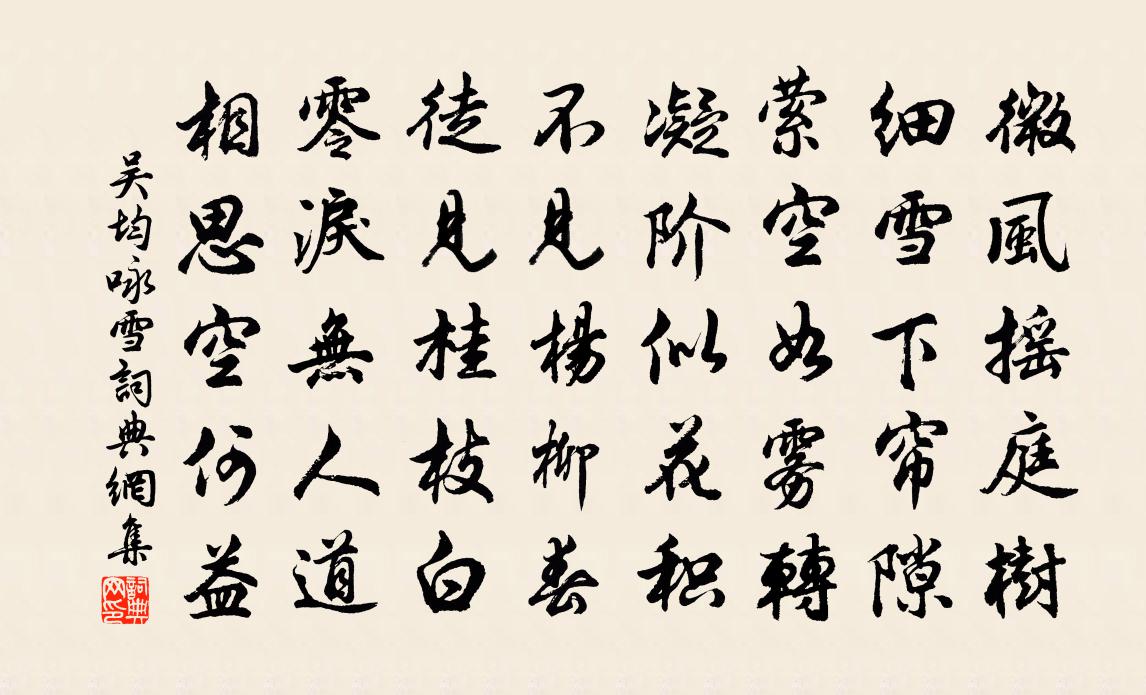 微風摇庭樹
细雪下帘隙
萦空如雾轉
凝阶似花积
不見楊柳春
徒見桂枝白
零淚無人道
相思空何益
吴均咏雪詞典網集
詞典网印